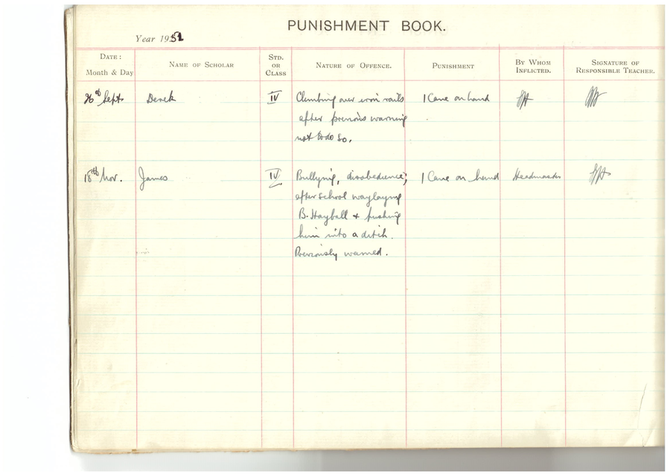 PUNISHMENT BOOK.
Year 1951
DATE:
Month & Day
NAME OF SCHOLAR
STD.
OR
CLASS
NATURE OF OFFENCE.
PUNISHMENT
BY WHOM
INFLICTED.
SIGNATURE OF
RESPONSIBLE TEACHER.
26th Sept Derek IV Climbing over iron rails 1 Cane on hand
after previous warning
not to do so.
18th Nov. James IV Bullying, disobedience; 1 Cane on hand Headmaster
after school waylaying
B. Hayball & pushing
him into a ditch.
Previously warned.